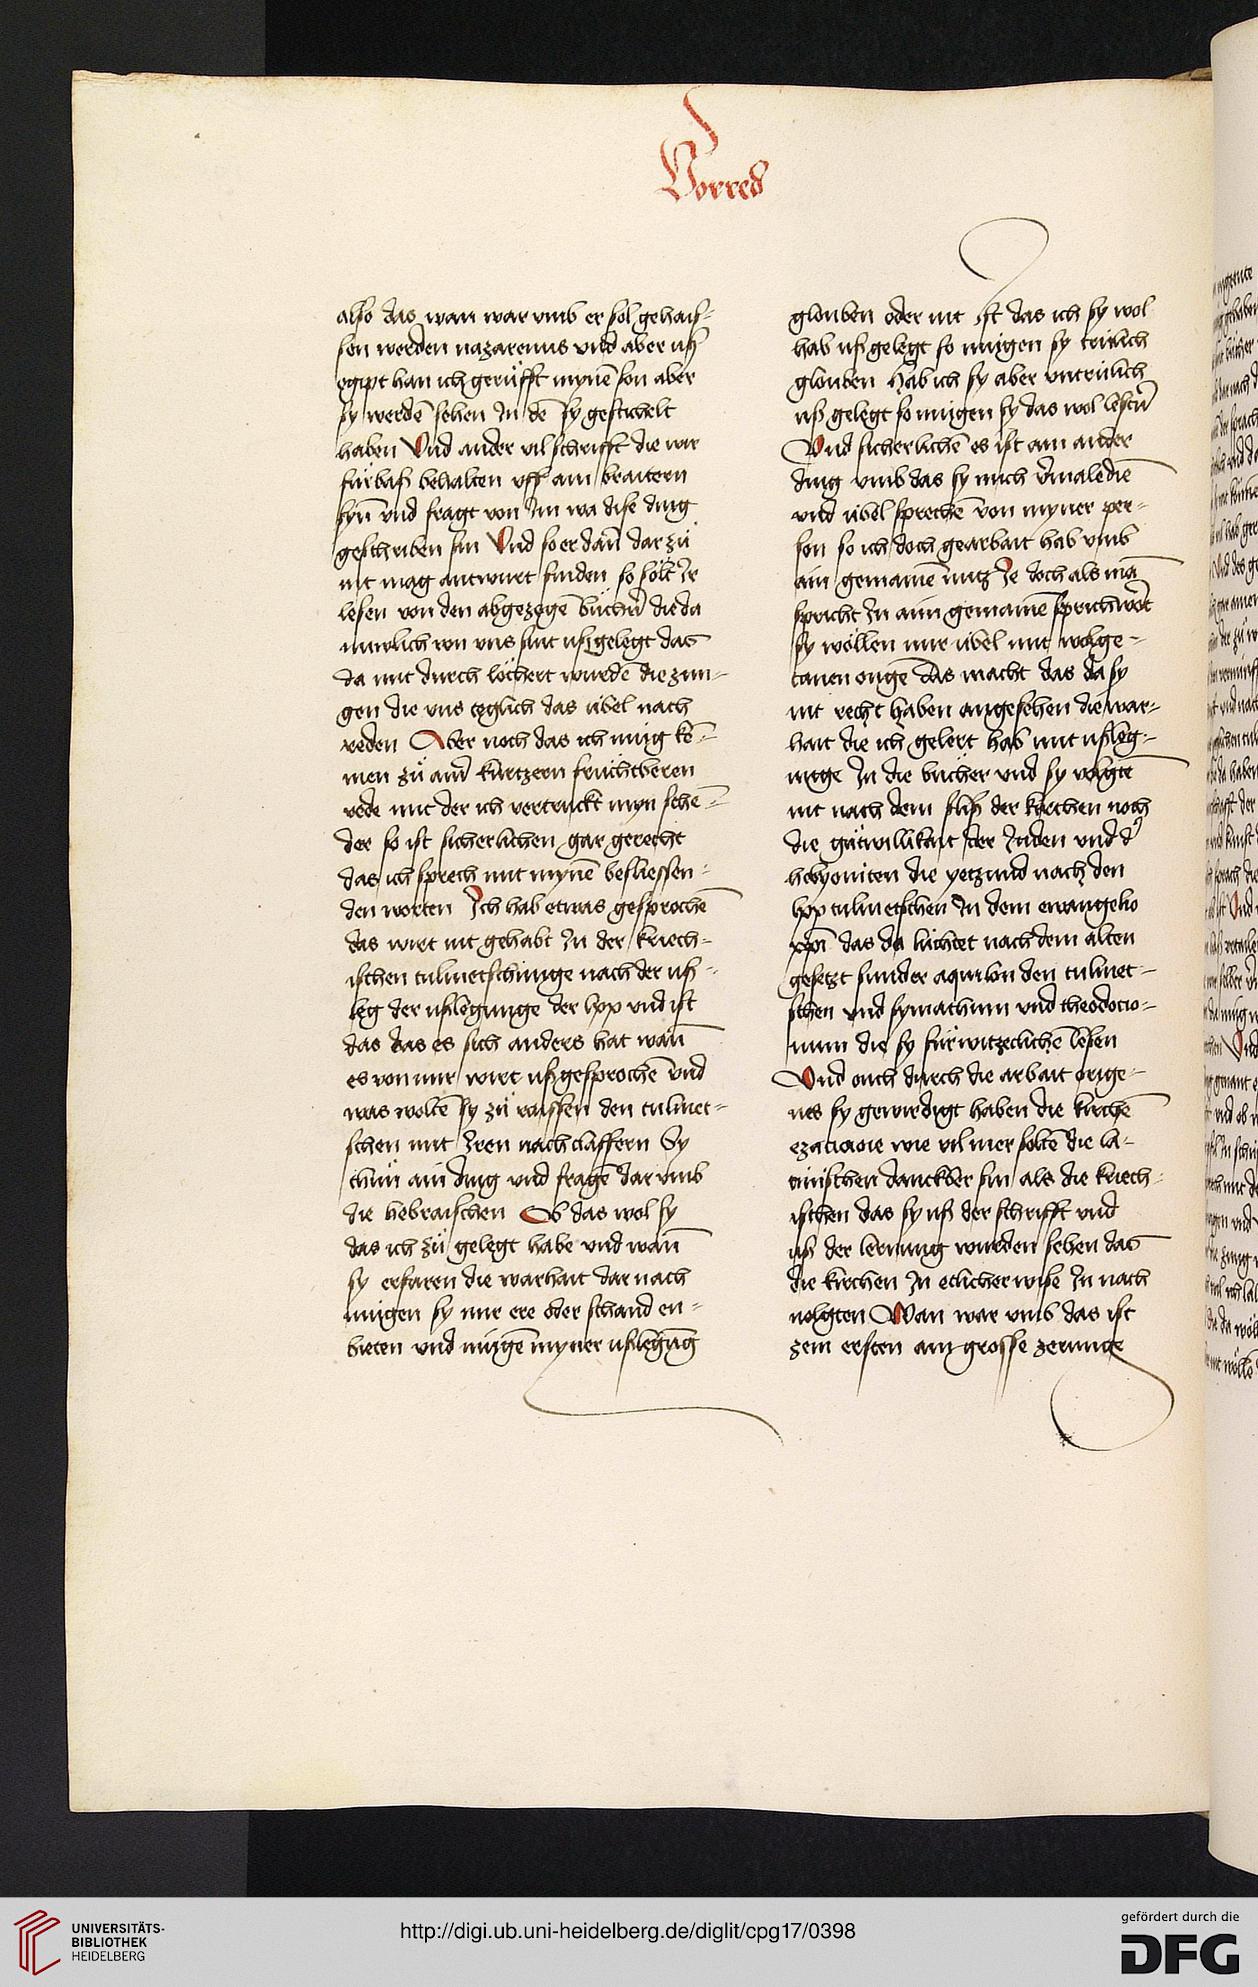 Vorred
also das wan war vmb er sol gehais-
sen werden nazarenus vnd aber uß
egipt han ich gerüfft mynē son aber
sy werdē sehen In dē sy gestichelt
haben Vnd ander vil schrifft die wir
fürbaß behalten vff ain braitern
syn̄ vnd fragt von Im wa dise ding
geschriben sin Vnd so er dan̄ dar zů
nit mag antwurt finden so sölt Ir
lesen von den abgezogē büchn̄ die da
nuwlich von vns sint ußgelegt das
da mit durch löchert wurdē die zun-
gen die vns teglich das übel nach
reden Aber noch das ich müg kē-
men zů ainr̄ kürtzern fruchtberen
rede mit der ich vertruckt myn schē-
der so ist sicherlichen gar gerecht
das ich sprech mit mynē besliessen-
den worten Ich hab etwas gesprochē
das wirt nit gehabt In der kriech-
ischen tulmetschunge nach der uß-
leg der ußlegunge der lxx vnd ist
das das es sich anders hat wan̄
es von mir wirt ußgesprochē vnd
was woltē sy zů raissen den tulmet-
schen mit Iren nachclaffern Sy
thüŭ ain ding vnd fragē dar vmb
die hebraischen Ob das wol sy
das ich zů gelegt habe vnd wan̄
sy erfaren die warhait dar nach
mügen sy mir ere oder schand en-
bieten vnd mügē myner ußlegūg
glouben oder nit Ist das ich sy wol
hab ußgelegt so mügen sy trülich
glouben Hab ich sy aber vntrülich
uß gelegt so mügen sy das wol lestn̄
Vnd sicherlichē es ist ain ander
ding vmb das sy mich v̄maledien̄
vnd übel sprechē von myner per-
son so ich doch gearbait hab vmb
ain gemainē nutz Je doch als mā
spricht In aim gemainē sprichwort
sy wöllen mir übel mit wolge-
tanen ougē das macht das da sy
nit recht haben angesehen die war-
hait die ich gelert hab mit ußleg-
unge In die bücher vnd sy volgtē
nit nach dem fliß der kirchen noch
die gütwillikait der Juden vnd d'
hebyoniten die yetzund nach den
lxx tulmetschen In dem ewangelio
xp̄i das da lüchtet nach dem alten
gesetzt sunder aquilon den tulmet-
schen vnd symachum vnd theodocio-
num die sy fürwitzeclichē lesen
Vnd ouch durch die arbait orige-
nes sy gewirdigt haben die kirchē
ezaciarie wie vil mer soltē die la-
tinischen danckber sin als die kriech-
ischen das sy uß der schrifft vnd
uß der lernung wurden sehen das
die kirchen In etlicher wise In nach
volgten Wan war vmb das ist
zem ersten ain grosse zerunge
UNIVERSITÄTS-
BIBLIOTHEK
HEIDELBERG
http://digi.ub.uni-heidelberg.de/diglit/cpg17/0398
gefördert durch die
DFG